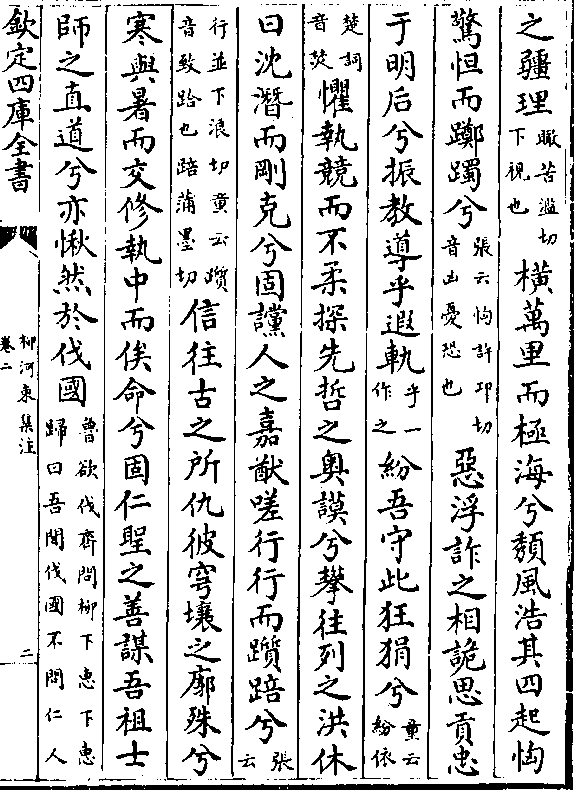 之疆理瞰苦濫切下視也橫萬里而極海兮頹風浩其四起恟
驚怛而躑躅兮張云恟許邛切音凶憂恐也惡浮詐之相詭思貢忠
于明后兮振教導乎遐軌乎一作之紛吾守此狂狷兮童云紛依
楚詞音熒懼執競而不柔探先哲之奥謨兮攀往列之洪休
曰沈潛而剛克兮固讜人之嘉猷嗟行行而躓踣兮張云
行並下浪切童云躓音致跲也踣蒲墨切信往古之所仇彼穹壤之廓殊兮
寒與暑而交修執中而俟命兮固仁聖之善謀吾祖士
師之直道兮亦愀然於伐國魯欲伐齊問柳下惠下惠歸曰吾聞伐國不問仁人
欽定四庫全書
柳河東集注
卷二
二